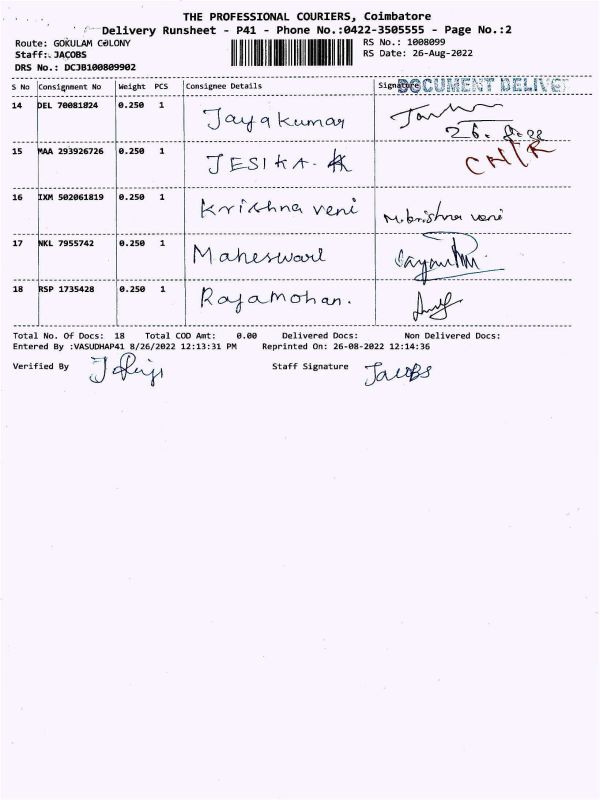 THE PROFESSIONAL COURIERS, Coimbatore
Delivery Runsheet - P41 - Phone No.:0422-3505555 - Page No.:2
Route: GOKULAM COLONY
Staff: JACOBS
DRS No.: DCJB100809902
RS No.: 1008099
RS Date: 26-Aug-2022
S No Consignment No Weight PCS Consignee Details Signature
DOCUMENT DELIVE
14 DEL 70081824 0.250 1 Jayakumar
26.8.22
15 MAA 293926726 0.250 1 JESIKA.
16 IXM 502061819 0.250 1 Krishna veni M.krishna veni
17 NKL 7955742 0.250 1 Maheswari
18 RSP 1735428 0.250 1 Rajamohan.
Total No. Of Docs: 18 Total COD Amt: 0.00 Delivered Docs: Non Delivered Docs:
Entered By :VASUDHAP41 8/26/2022 12:13:31 PM Reprinted On: 26-08-2022 12:14:36
Verified By Staff Signature Jacobs